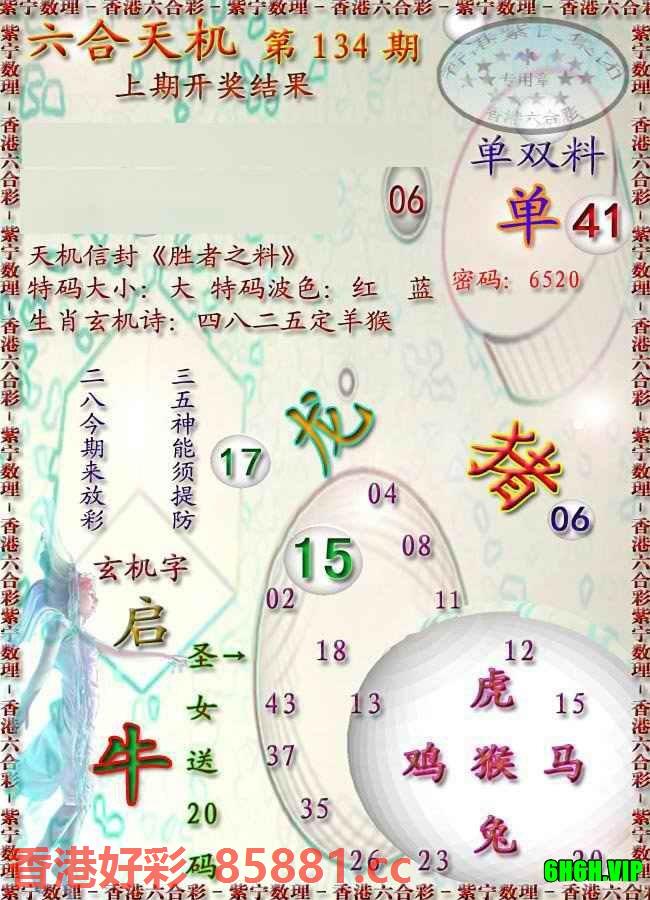 紫宁数理－香港六合彩－紫宁数理－香港六合彩－紫宁数理－香港六合彩
六合天机 第134期
上期开奖结果
专用章
香港六合彩
单双料
06
单 41
天机信封《胜者之料》
特码大小：大 特码波色：红 蓝
密码：6520
生肖玄机诗：四八二五定羊猴
二八今期来放彩
三五神能须提防
17
龙
猪
06
04
15
08
玄机字
启
02
11
圣→
女
送
20
码
18
12
虎
43
13
15
牛
37
鸡 猴 马
35
兔
26
23
20
香港好彩 85881.cc
6H6H.VIP
紫宁数理－香港六合彩－紫宁数理－香港六合彩－紫宁数理－香港六合彩